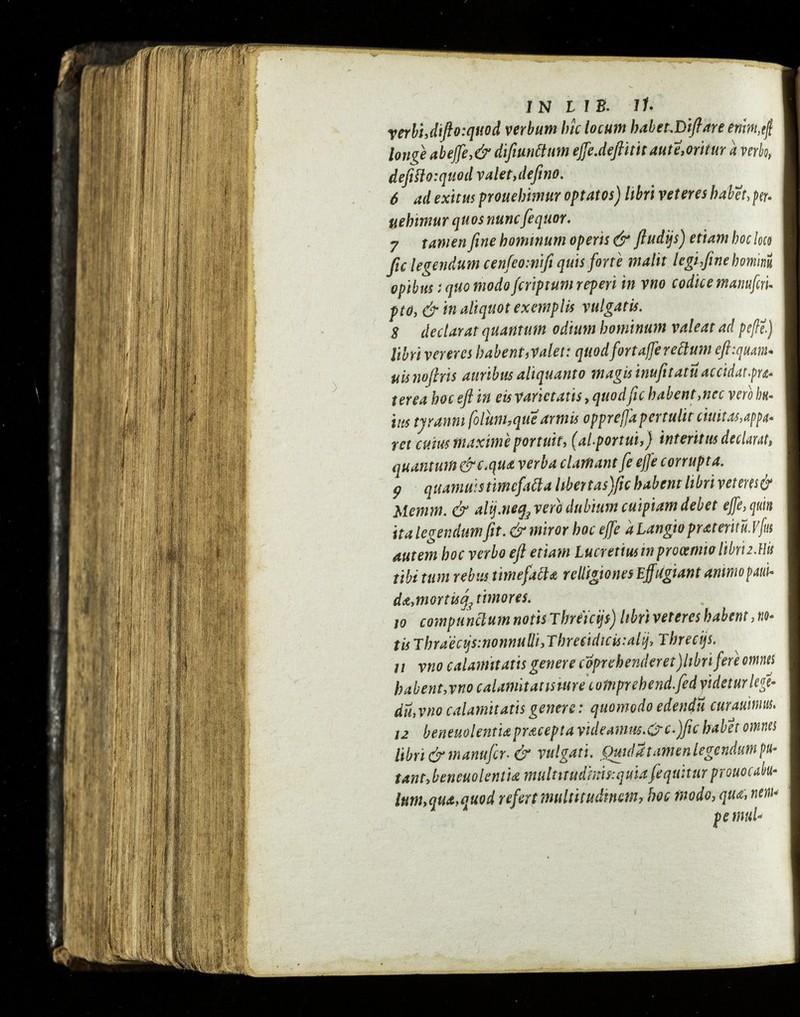 IN LIB. II.
verbi,disto:quod verbum hîc locum habet.Distare enim,est
longè abesse,& disiunctum esse.destitit autē,oritur à verbo,
desisto:quod valet,desino.
6 ad exitus prouehimur optatos) libri veteres habēt, per-
uehimur quos nunc sequor.
7 tamen sine hominum operis & studijs) etiam hoc loco
sic legendum censeo:nisi quis forte malit legi,sine hominū
opibus : quo modo scriptum reperi in vno codice manuscri-
pto, & in aliquot exemplis vulgatis.
8 declarat quantum odium hominum valeat ad pestē.)
libri vereres habent,valet: quod fortasse rectum est:quam-
uis nostris auribus aliquanto magis inusitatū accidat.præ-
terea hoc est in eis varietatis, quod sic habent,nec verò hu-
ius tyranni solùm,quē armis oppressa pertulit ciuitas,appa-
ret cuius maximè portuit, (al.portui,) interitus declarat,
quantum &c.quæ verba clamant se esse corrupta.
9 quamuis timefacta libertas)sic habent libri veteres &
Memm. & alij.neq; verò dubium cuipiam debet esse, quin
ita legendum sit. & miror hoc esse à Langio præteritū.Vsus
autem hoc verbo est etiam Lucretius in prooemio libri 2.His
tibi tum rebus timefactæ relligiones Effugiant animo paui-
dæ,mortisq; timores.
10 compunctum notis Threïcijs) libri veteres habent, no-
tis Thraëcijs:nonnulli,Threcidicis:alij, Threcijs.
11 vno calamitatis genere cōprehenderet)libri ferè omnes
habent,vno calamitatis iure comprehend.sed videtur legē-
dū,vno calamitatis genere : quomodo edendū curauimus.
12 beneuolentiæ præcepta videamus.&c.)sic habēt omnes
libri & manuscr. & vulgati. Quidā tamen legendum pu-
tant,beneuolentiæ multitudinis:quia sequitur prouocabu-
lum,quæ,quod refert multitudinem, hoc modo, quæ, nem-
pe mul-